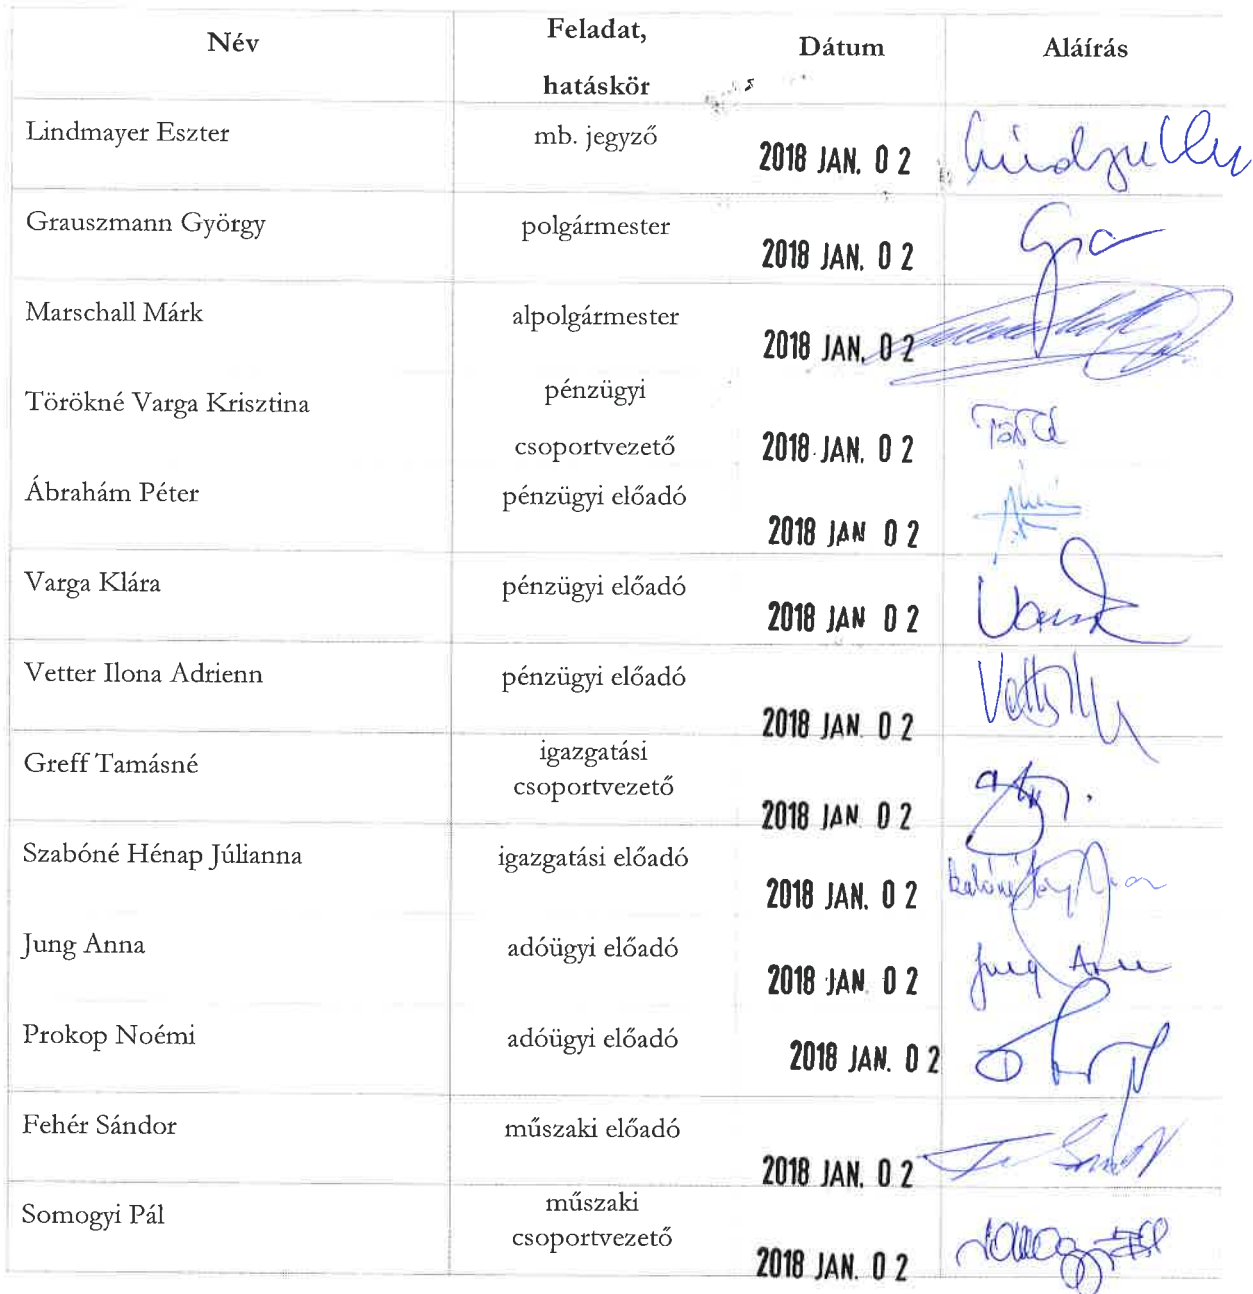 Név
Feladat,
hatáskör
Dátum
Aláírás
Lindmayer Eszter
mb. jegyző
2018 JAN. 02
Grauszmann György
polgármester
2018 JAN. 02
Gra
Marschall Márk
alpolgármester
2018 JAN. 02
Törökné Varga Krisztina
pénzügyi
csoportvezető
2018 JAN. 02
Ábrahám Péter
pénzügyi előadó
2018 JAN 02
Varga Klára
pénzügyi előadó
2018 JAN 02
Vetter Ilona Adrienn
pénzügyi előadó
2018 JAN. 02
Greff Tamásné
igazgatási
csoportvezető
2018 JAN 02
Szabóné Hénap Júlianna
igazgatási előadó
2018 JAN. 02
Jung Anna
adóügyi előadó
2018 JAN. 02
Jung Anna
Prokop Noémi
adóügyi előadó
2018 JAN. 02
Fehér Sándor
műszaki előadó
2018 JAN. 02
Somogyi Pál
műszaki
csoportvezető
2018 JAN. 02